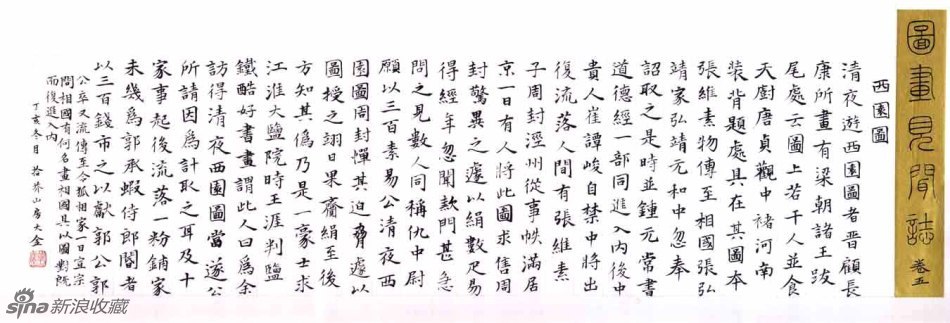 圖畫見聞誌 卷五
西園圖
清夜遊西園圖者晋顧長
康所畫有梁朝諸王跋
尾處云圖上若干人並食
天廚唐貞觀中褚河南
装背題處具在其圖本
張維素物傳至相國張弘
靖家弘靖元和中忽奉
詔取之是時並鍾元常書
道德經一部同進入內後中
貴人崔譚峻自禁中將出
復流落人間有張維素
子周封涇州從事帙滿居
京一日有人將此圖求售周
封驚異之遽以絹數疋易
得經年忽聞款門甚急
問之見數人同稱仇中尉
願以三百素易公清夜西
園圖周封憚其迫脅遽以
圖授之翊日果齎絹至後
方知其偽乃是一豪士求
江淮大鹽院時王涯判鹽
鐵酷好書畫謂此人曰為余
訪得清夜西園圖當遂公
所請因為計取之耳及十
家事起後流落一粉鋪家
未幾為郭承蝦侍郎閽者
以三百錢市之以獻郭公郭
公卒又流傳至令狐相家一日宣宗
問相國有何名畫相國具以圖對既
而復進入內
丁亥冬月 拾芥山房大金
sina新浪收藏